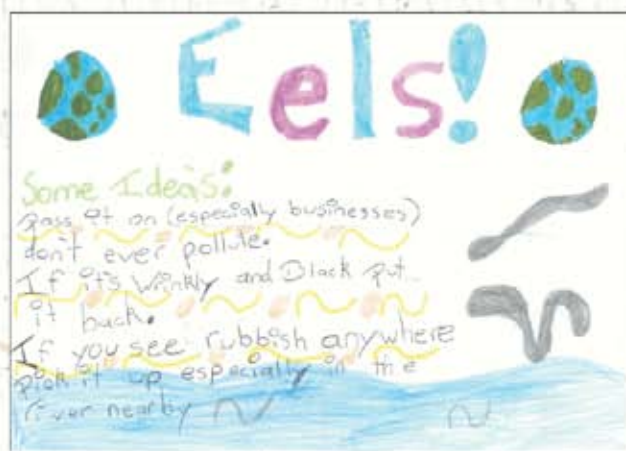 Eels!
Some Ideas:
Pass it on (especially businesses)
don't ever pollute.
If it's Wrinkly and Black put
it back.
If you see rubbish anywhere
pick it up especially in the
river nearby